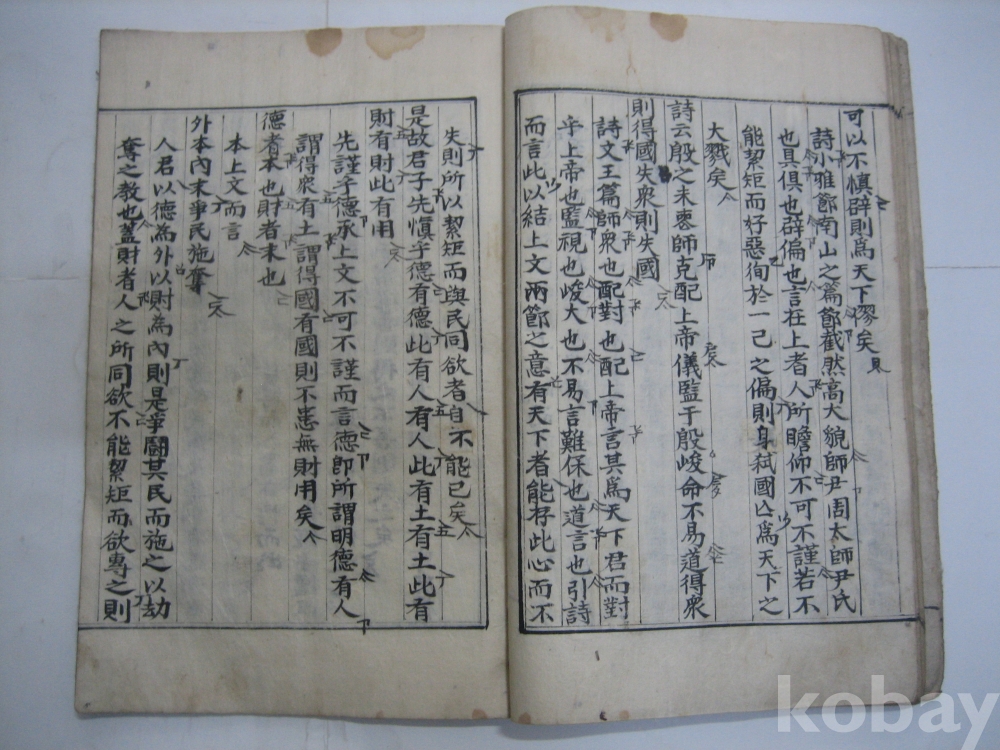 可以不慎辟則爲天下僇矣
詩小雅節南山之篇節截然高大貌師尹周太師尹氏
也具俱也辟偏也言在上者人所瞻仰不可不謹若不
能絜矩而好惡徇於一己之偏則身弑國亡爲天下之
大戮矣
詩云殷之未喪師克配上帝儀監于殷峻命不易道得衆
則得國失衆則失國
詩文王篇師衆也配對也配上帝言其爲天下君而對
乎上帝也監視也峻大也不易言難保也道言也引詩
而言此以結上文兩節之意有天下者能存此心而不
失則所以絜矩而與民同欲者自不能已矣
是故君子先慎乎德有德此有人有人此有土有土此有
財有財此有用
先謹乎德承上文不可不謹而言德即所謂明德有人
謂得衆有土謂得國有國則不患無財用矣
德者本也財者末也
本上文而言
外本內末爭民施奪
人君以德為外以財為內則是爭鬪其民而施之以劫
奪之教也蓋財者人之所同欲不能絜矩而欲專之則
kobay